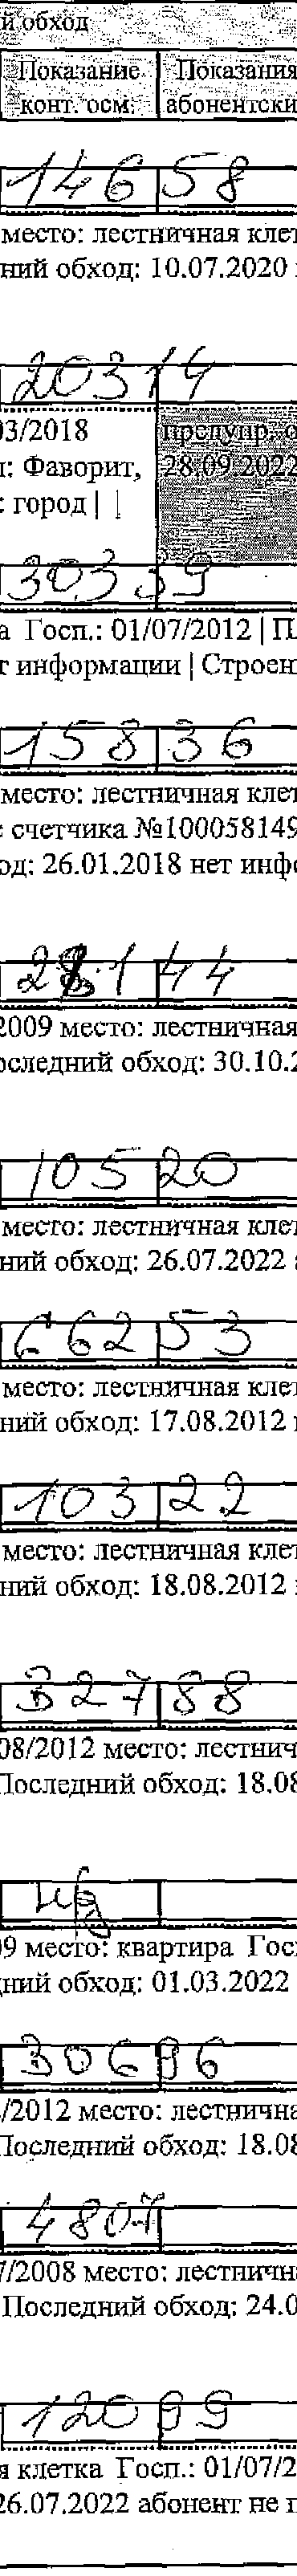 й обход
Показание Показания
конт. осм. абонентски
14658
место: лестничная клет
ний обход: 10.07.2020
20314
03/2018 предупр. о
: Фаворит, 28.09.2022
: город | |
30339
а Госп.: 01/07/2012 | П
т информации | Строен
15836
место: лестничная клет
счетчика №100058149
од: 26.01.2018 нет инфо
28144
2009 место: лестничная
оследний обход: 30.10.2
10520
место: лестничная клет
ний обход: 26.07.2022 а
66253
место: лестничная клет
ний обход: 17.08.2012
10322
место: лестничная клет
ний обход: 18.08.2012
32788
08/2012 место: лестнич
Последний обход: 18.08
н/д
09 место: квартира Гос
дний обход: 01.03.2022
30696
/2012 место: лестнична
Последний обход: 18.08
4807
7/2008 место: лестнична
Последний обход: 24.0
12099
я клетка Госп.: 01/07/2
26.07.2022 абонент не п